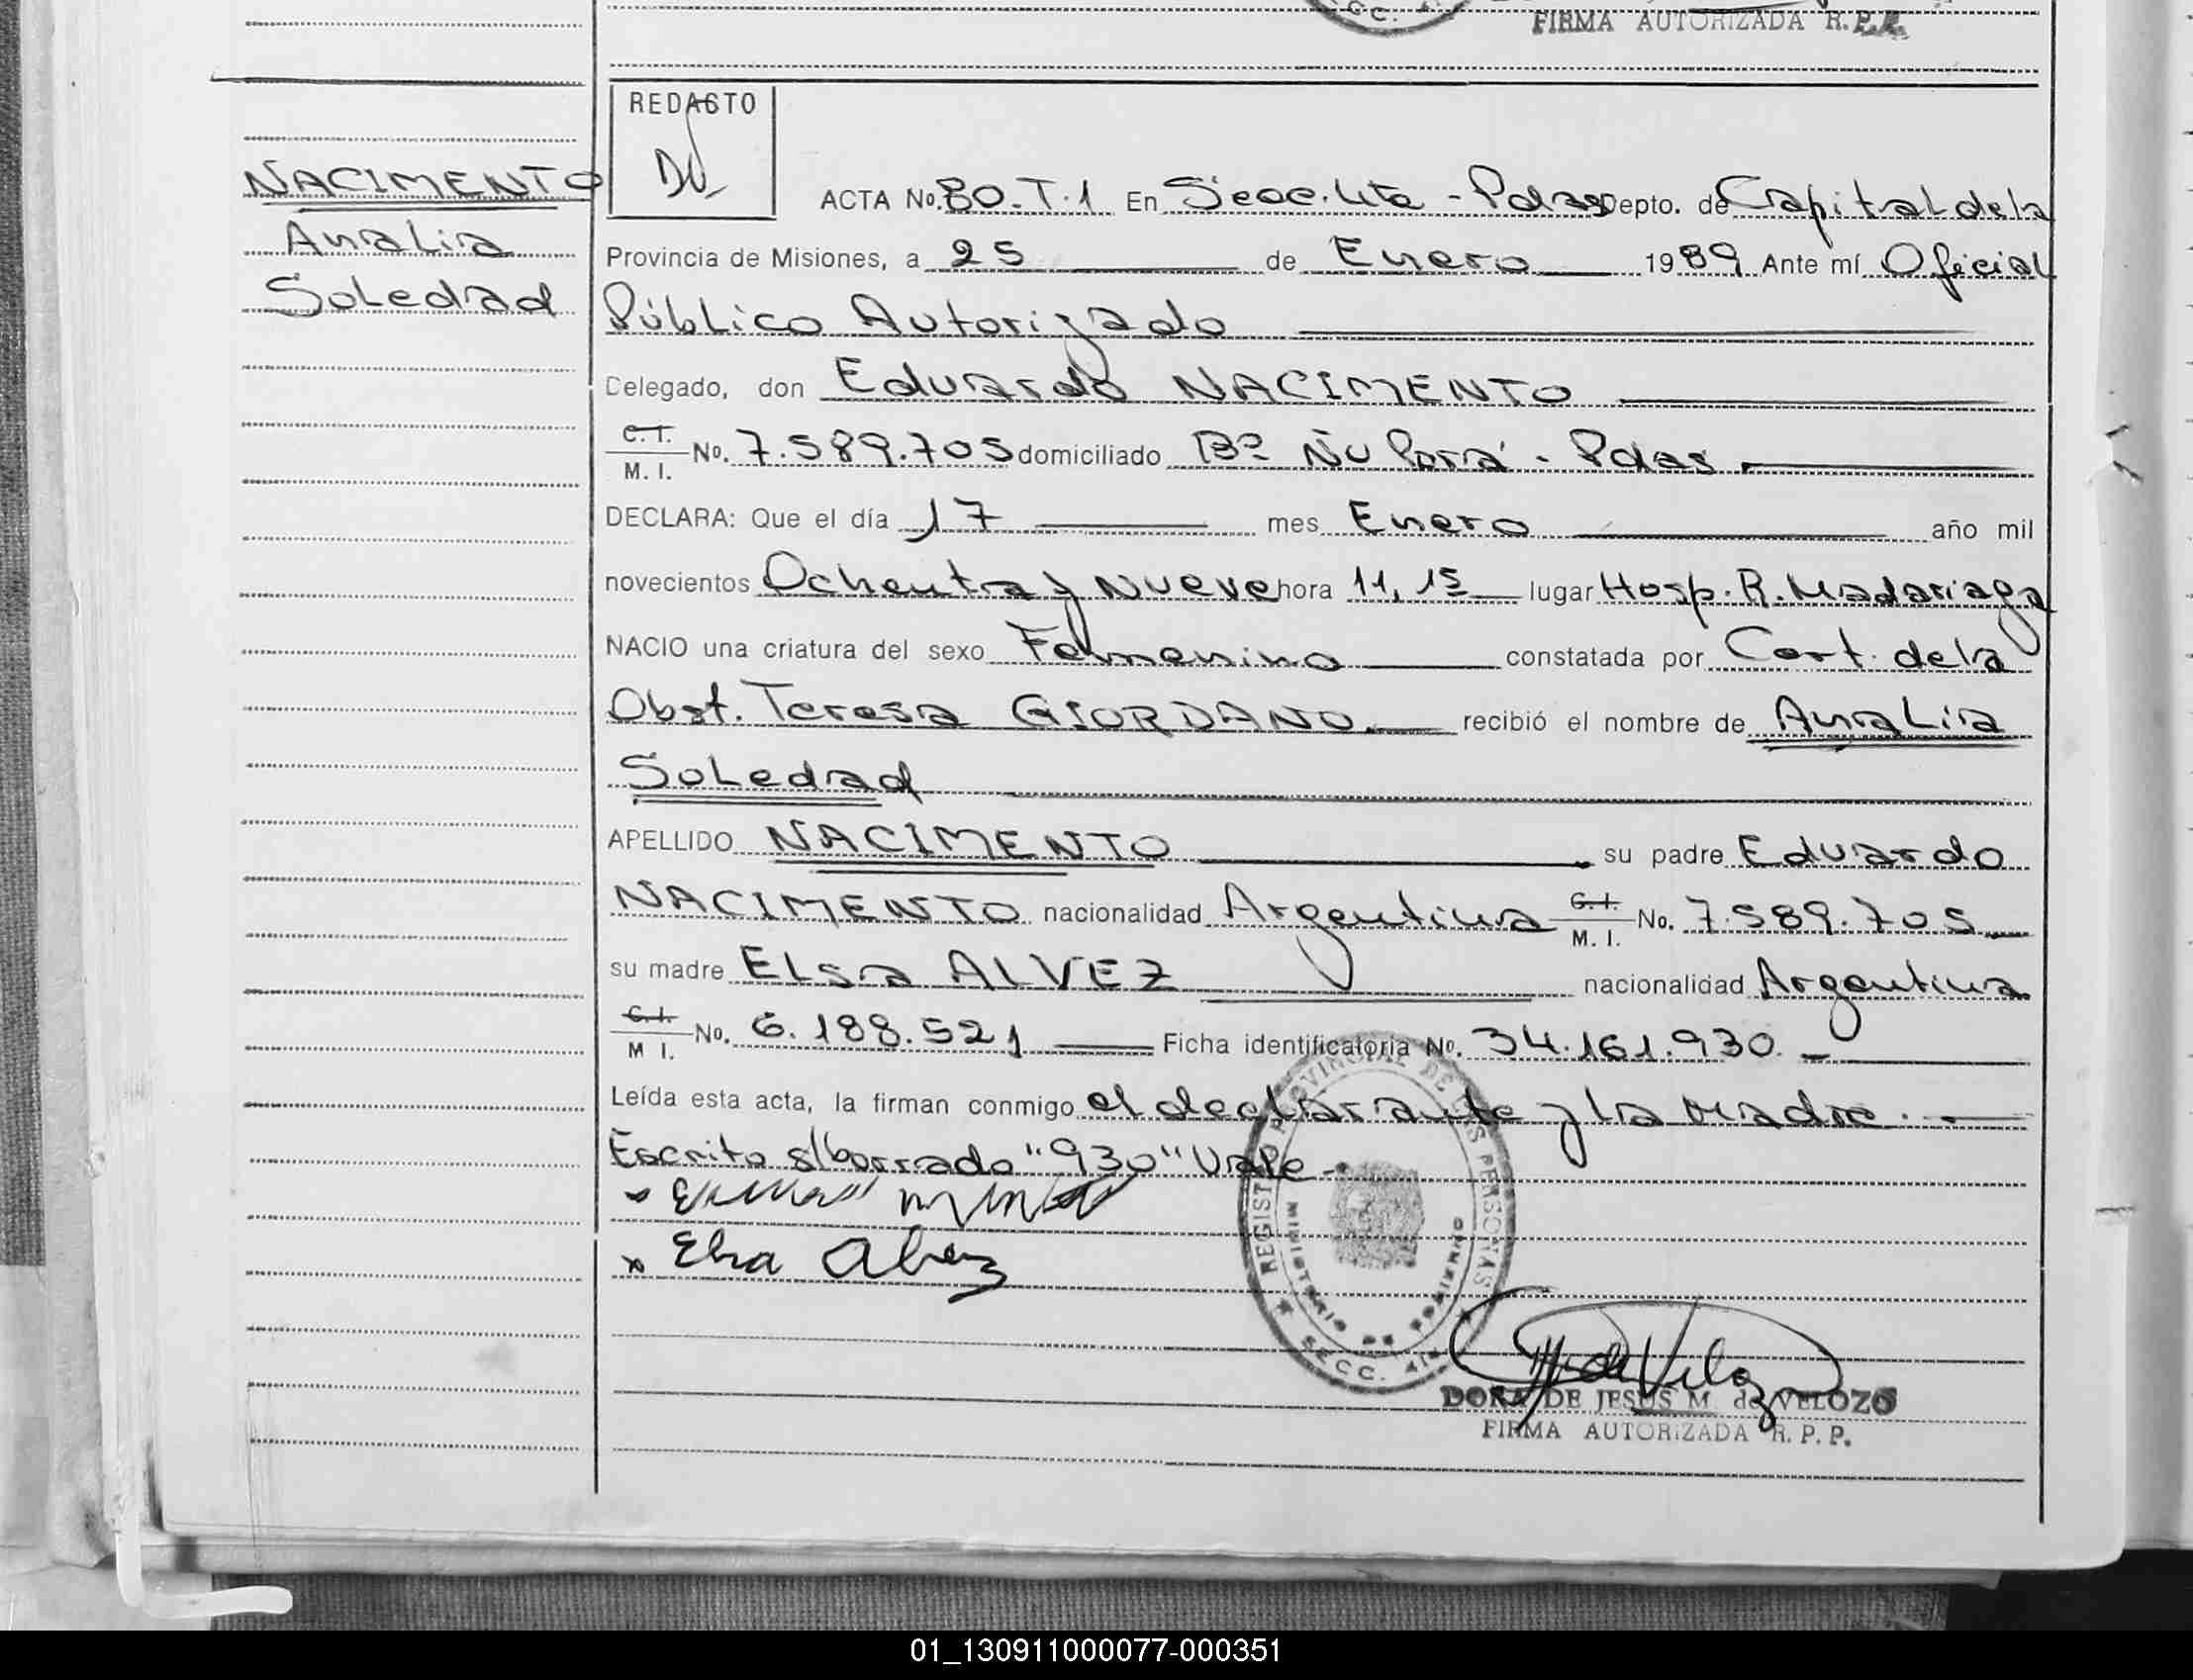 SECC. 4
FIRMA AUTORIZADA R.P.P.
REDACTO
NACIMENTO
Analia
Soledad
ACTA No. 80.T.1 En Secc. 4ta - Pdas Depto. de Capital de la
Provincia de Misiones, a 25 de Enero 1989 Ante mí Oficial
Público Autorizado
Celegado, don Eduardo NACIMENTO
C.I.
M. I. No. 7.589.705 domiciliado Bº Ñu Porá - Pdas.
DECLARA: Que el día 17 mes Enero año mil
novecientos Ochenta y Nueve hora 11,15 lugar Hosp. R. Madariaga
NACIO una criatura del sexo Femenino constatada por Cert. de la
Obst. Teresa GIORDANO recibió el nombre de Analía
Soledad
APELLIDO NACIMENTO su padre Eduardo
NACIMENTO nacionalidad Argentina C.I. M. I. No. 7.589.705
su madre Elsa ALVEZ nacionalidad Argentina
C.I.
M I. No. 6.188.521 Ficha identificatoria No. 34.161.930.
Leída esta acta, la firman conmigo el declarante y la Madre.
Escrito s/borrado "930" Vale
x Elsa Alvez
REGISTRO PROVINCIAL DE LAS PERSONAS
MINISTERIO DE GOBIERNO
SECC. 4ta
DORA DE JESUS M de VELOZO
FIRMA AUTORIZADA R. P. P.
01_130911000077-000351